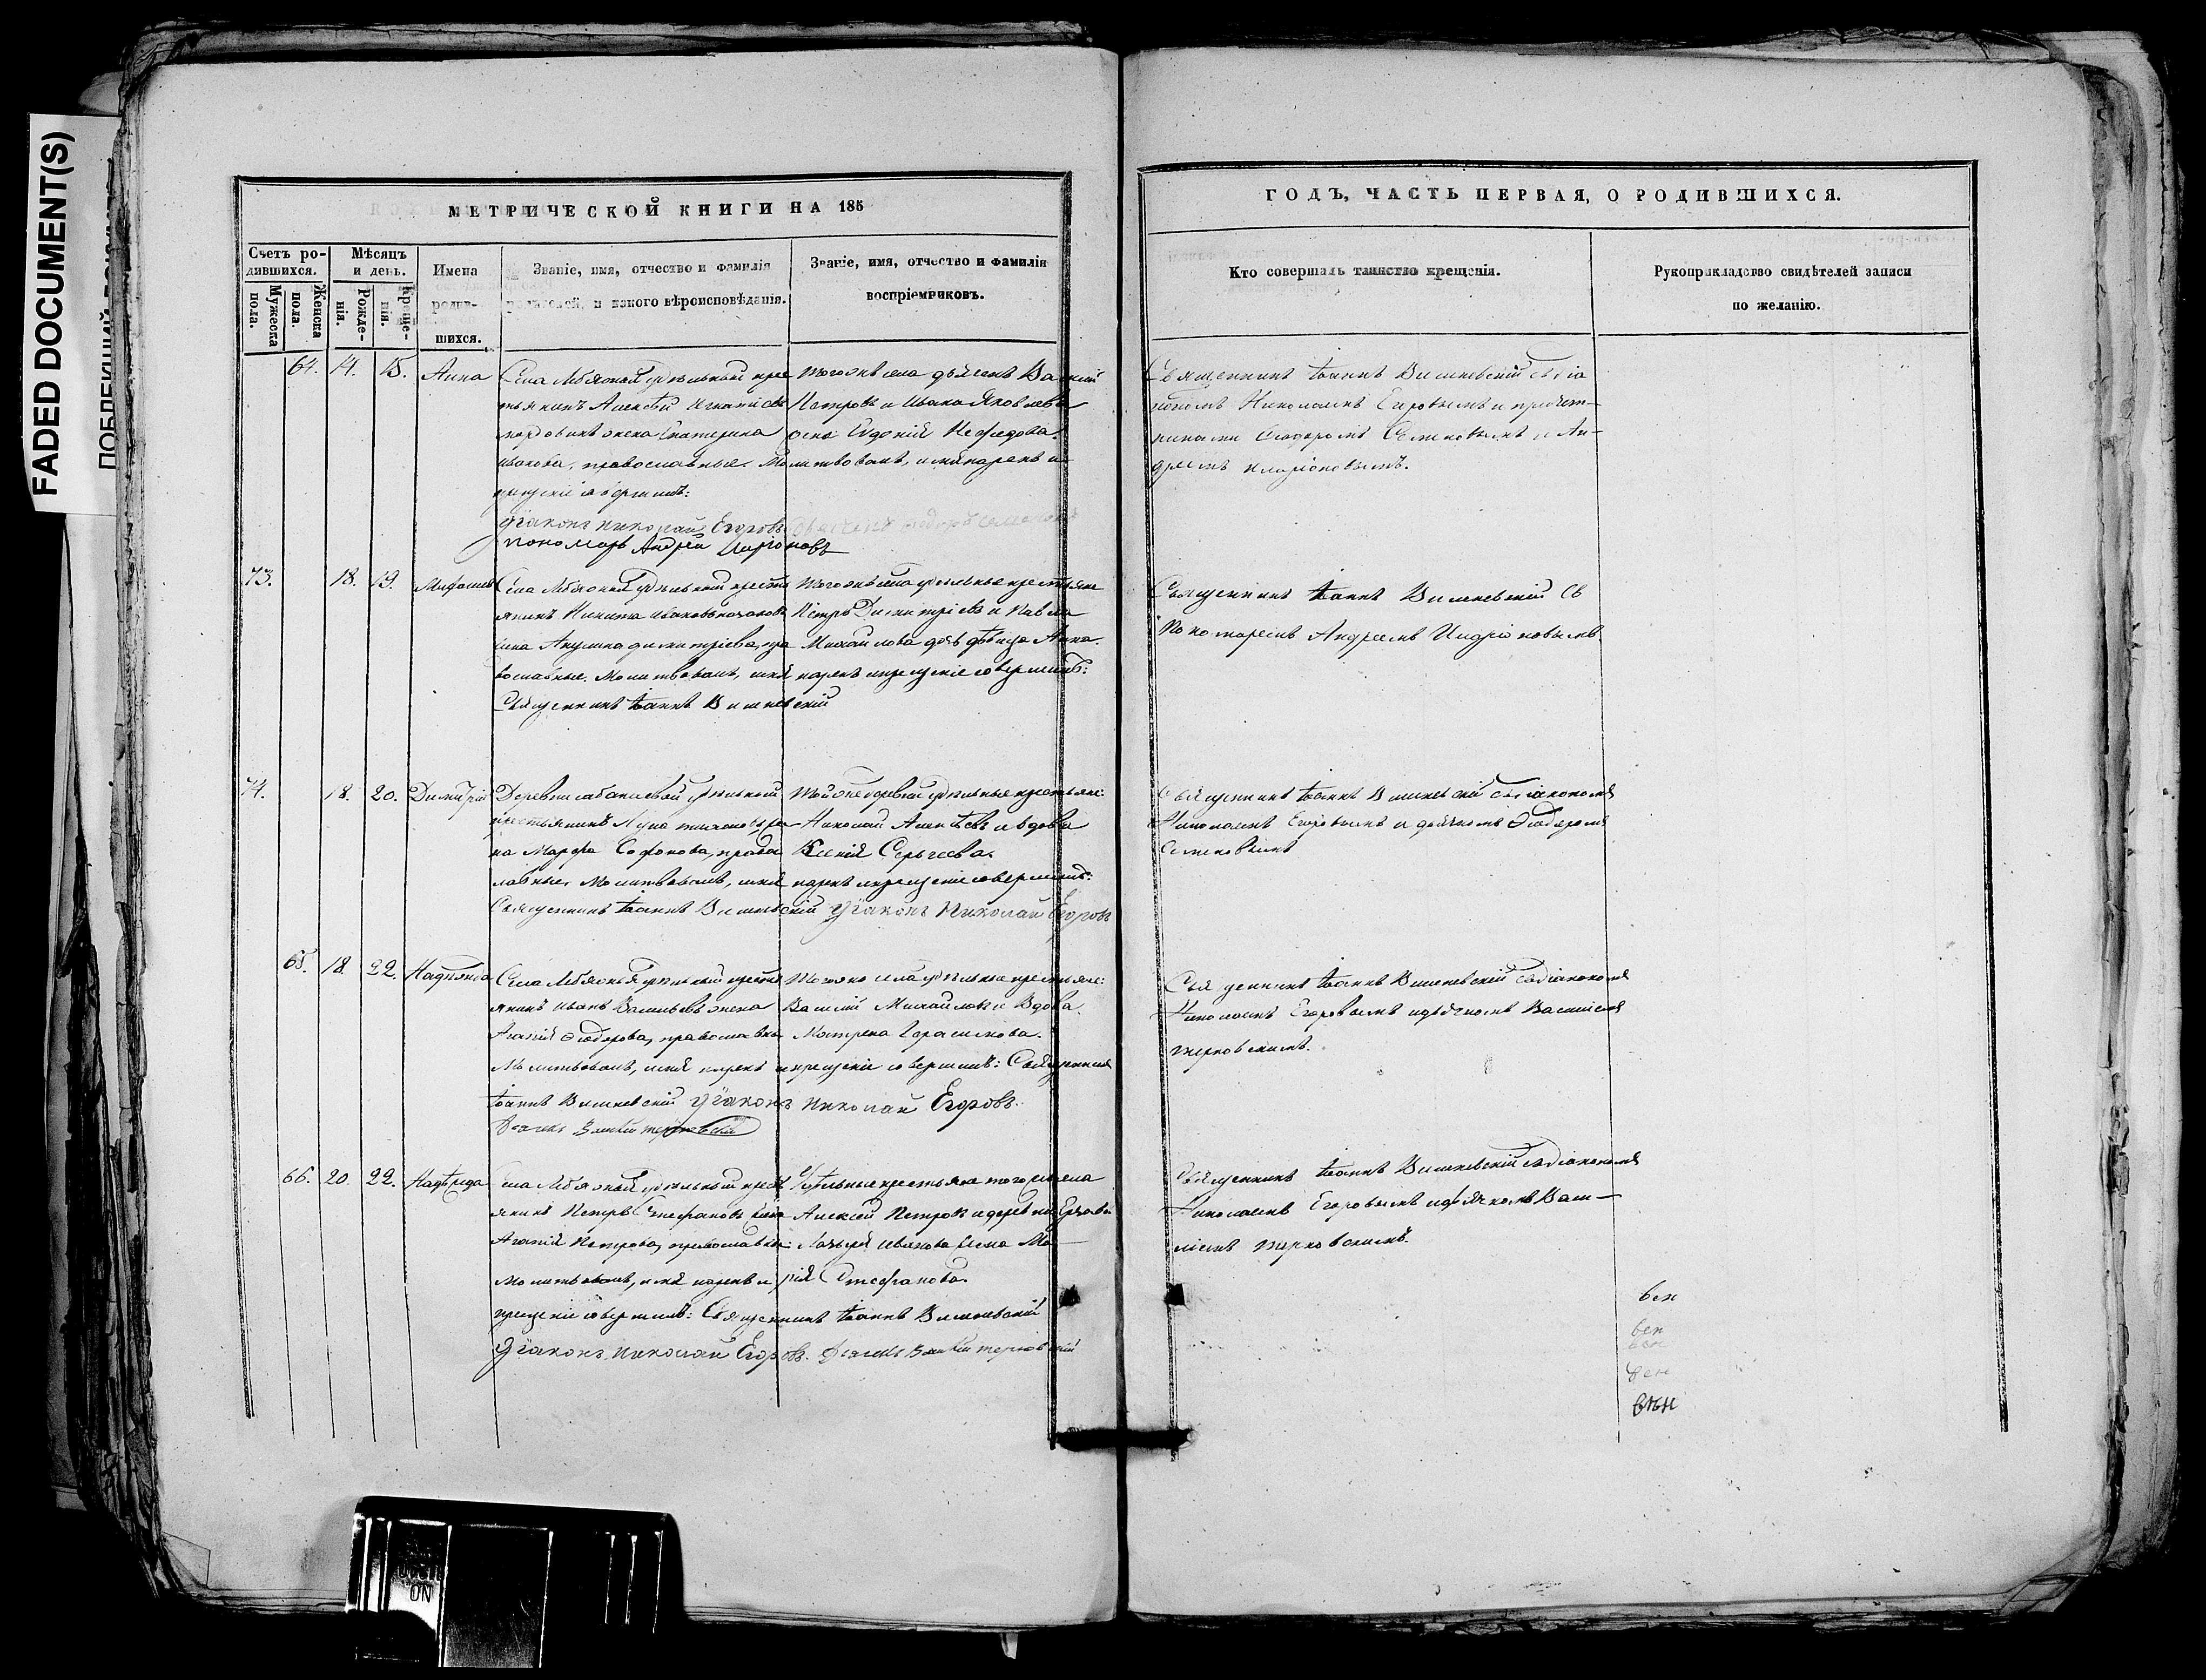 FADED DOCUMENT(S)
МЕТРИЧЕСКОЙ КНИГИ НА 185
Счетъ ро-
дившихся.
Мужеска пола.
Женска пола.
Мѣсяцъ
и день.
Рожде-
нія.
Креще-
нія.
Имена
родив-
шихся.
Званіе, имя, отчество и фамилія
родителей, и какого вѣроисповѣданія.
Званіе, имя, отчество и фамилія
воспріемниковъ.
ГОДЪ, ЧАСТЬ ПЕРВАЯ, О РОДИВШИХСЯ.
Кто совершалъ таинство крещенія.
Рукоприкладство свидѣтелей записи
по желанію.
64. 14. 15. Анна
Села удѣльный крес
тьянинъ Алексѣй Игнатьевъ
мордвинъ жена Екатерина
Иванова, православные. Молитвовалъ, имя нарекъ и
крещеніе совершилъ:
Діаконъ Николай Егоровъ
Пономарь Андрей Иларіоновъ
тогожъ села дьячекъ Василій
Петровъ и Ивана Яковлева
жена Евдокія Нефедова.
Священникъ Іоаннъ Вишневскій съ діа
кономъ Николаемъ Егоровымъ и причет-
никами Ѳеодоромъ Семеновымъ и Ан-
дреемъ Иларіоновымъ.
73. 18. 19.
Села удѣльный кресть
янинъ Никита Ивановъ жена
Акулина Димитріева, пра
вославные. Молитвовалъ, имя нарекъ и крещеніе совершилъ:
Священникъ Іоаннъ Вишневскій
тогожъ села удѣльные крестьяне
Петръ Димитріевъ и Павла
Михайлова дочь дѣвица Анна.
Священникъ Іоаннъ Вишневскій съ
Пономаремъ Андреемъ Иларіоновымъ
74. 18. 20. Димитрій
Деревни удѣльный
крестьянинъ Лука Тихоновъ же
на Марфа Софонова, право
славные. Молитвовалъ, имя нарекъ и крещеніе совершилъ:
Священникъ Іоаннъ Вишневскій Діаконъ Николай Егоровъ
Тойже деревни удѣльные крестьяне:
Николай Алексѣевъ и вдова
Ксенія Сергѣева.
Священникъ Іоаннъ Вишневскій съ діакономъ
Николаемъ Егоровымъ и дьячкомъ Ѳеодоромъ
Семеновымъ
65. 18. 22. Надежда
Села удѣльный кресть
янинъ Иванъ Васильевъ жена
Агафія Ѳеодорова, православны
Молитвовалъ, имя нарекъ и крещеніе совершилъ: Священникъ
Іоаннъ Вишневскій Діаконъ Николай Егоровъ.
Дьячекъ Василій Терновскій
Тогоже села удѣльные крестьяне:
Василій Михайловъ и Вдова
Матрена Герасимова.
Священникъ Іоаннъ Вишневскій съ діакономъ
Николаемъ Егоровымъ и дьячкомъ Василіемъ
Терновскимъ.
66. 20. 22. Надежда
Села удѣльный кресть
янинъ Петръ Стефановъ жена
Агафія Петрова, православны:
Молитвовалъ, имя нарекъ и
крещеніе совершилъ: Священникъ Іоаннъ Вишневскій
Діаконъ Николай Егоровъ. Дьячекъ Василій Терновскій
Удѣльные крестьяне того села
Алексѣй Петровъ и деревни
Лазаря Иванова жена Ма-
рія Стефанова.
Священникъ Іоаннъ Вишневскій съ діакономъ
Николаемъ Егоровымъ и дьячкомъ Васи-
ліемъ Терновскимъ.